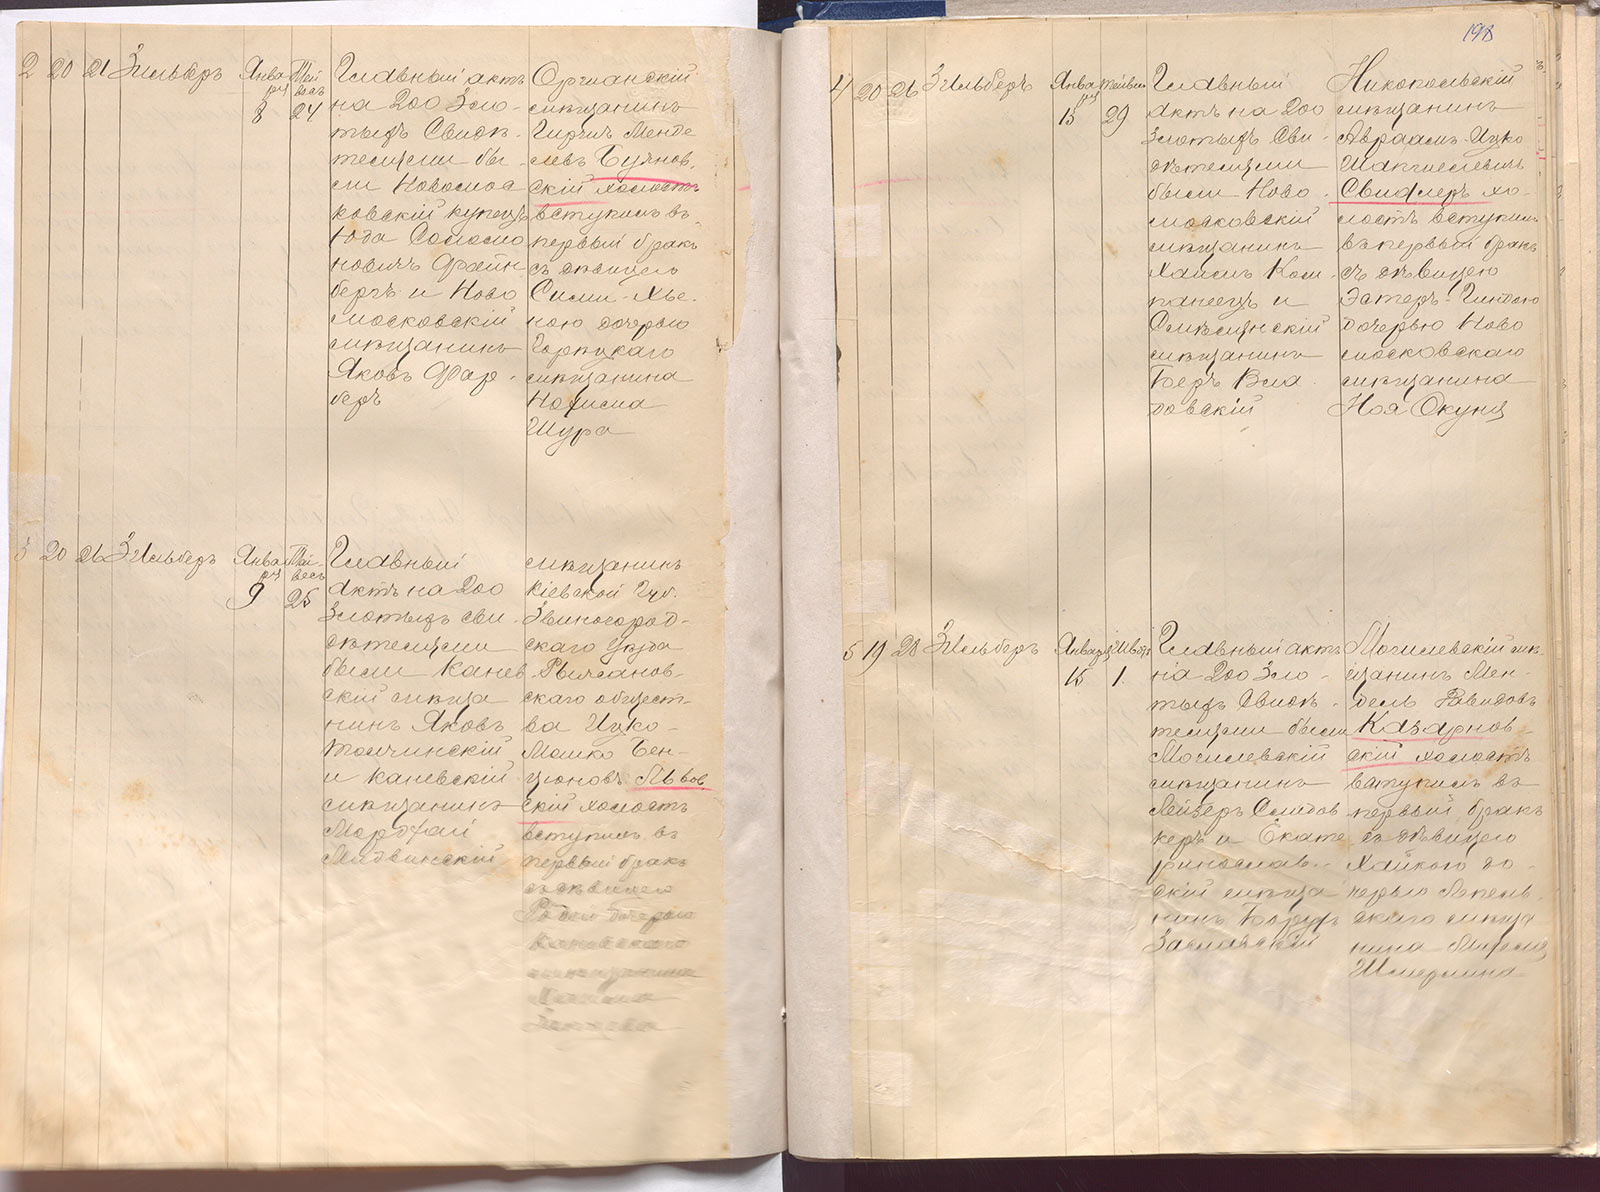 2 20 21 Зильберъ
Янва
ря
8
Тей
весъ
24
Главный актъ
на 200 зло-
тыхъ Свидѣ-
телями бы-
ли Новомос
ковскій купецъ
Юда Соломо
новичъ Файн
бергъ и Ново
московскій
мѣщанинъ
Яковъ Фар-
беръ
Оргианскій
мѣщанинъ
Гиршъ Менде
левъ Буянов-
скій холостъ
вступилъ въ
первый бракъ
съ дѣвицею
Сими-Хье-
ною дочерью
мѣщанина
Нохима
Шура
3 20 26 Зильберъ
Янва
ря
9
Тей-
весъ
25
Главный
актъ на 200
злотыхъ сви-
дѣтелями
были Канев
скій мѣща
нинъ Яковъ
Толчинскій
и Каневскій
мѣщанинъ
Мордхай
Лядвинскій
мѣщанинъ
Кіевской Губ.
Звиногород-
скаго уѣзда
Рыжанов-
скаго общест-
ва Ицко-
Мошко Бен-
ціоновъ Львов
скій холостъ
вступилъ въ
первый бракъ
съ дѣвицею
дочерью
Каневскаго
мѣщанина
198
4 20 26 Зильберъ
Янва
ря
15
Тейвис
29
Главный
актъ на 200
злотыхъ Сви-
дѣтелями
были Ново-
московскій
мѣщанинъ
Хаимъ Ком-
панеецъ и
Смѣлянскій
мѣщанинъ
Беръ Вла
довскій
Никопольскій
мѣщанинъ
Авраамъ-Ицко
Свидлеръ хо-
лостъ вступилъ
въ первый бракъ
съ дѣвицею
Эстеръ-Гиндою
дочерью Ново
московскаго
мѣщанина
Ноя Окунь
5 19 28 Зильберъ
Января
15
Швотъ
1.
Главный актъ
на 200 зло-
тыхъ Свидѣ-
телями были
Могилевскій
мѣщанинъ
Лейзеръ
керъ и Екате
ринослав-
скій мѣща
нинъ Борухъ
Заславскій
Могилевскій мѣ-
щанинъ Мен-
дель Давидовъ
Казарнов-
скій холостъ
вступилъ въ
первый бракъ
съ дѣвицею
Хайкою до-
черью Лепель-
скаго мѣща
нина
Шмерлина